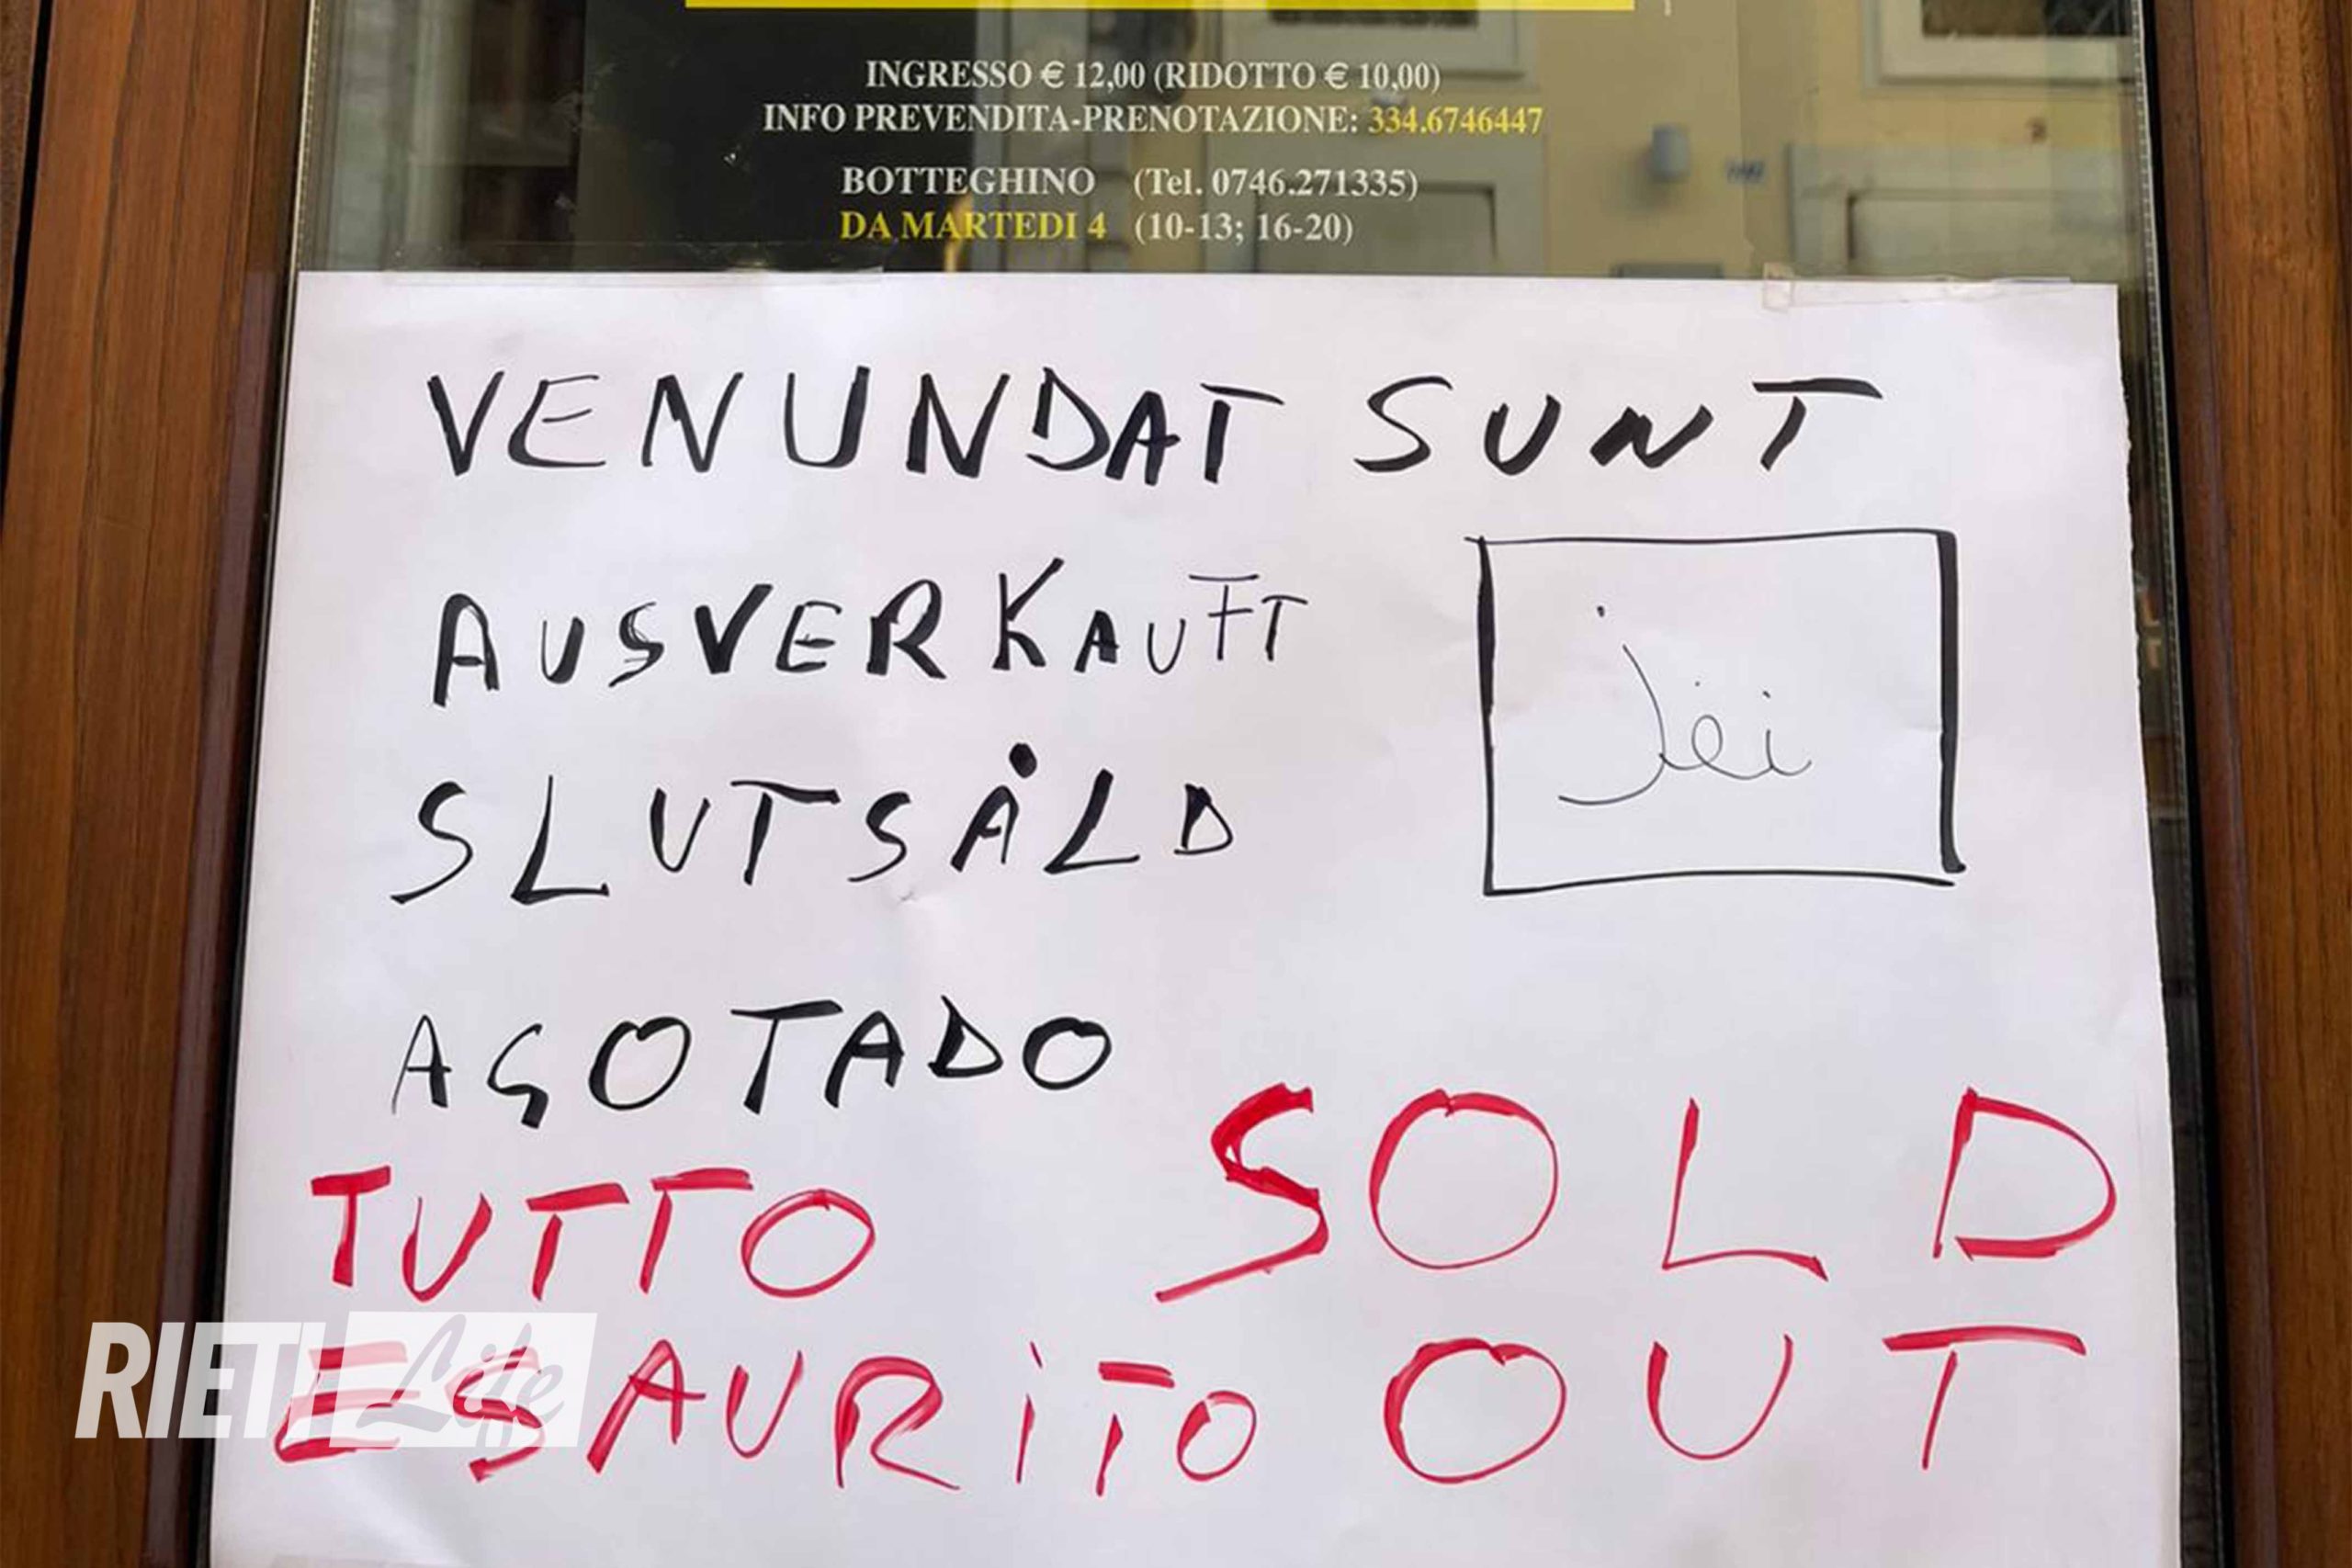 INGRESSO € 12,00 (RIDOTTO € 10,00)
INFO PREVENDITA-PRENOTAZIONE: 334.6746447
BOTTEGHINO (Tel. 0746.271335)
DA MARTEDI 4 (10-13; 16-20)
VENUNDAT SUNT
AUSVERKAUFT
jei
SLUTSÅLD
AGOTADO
TUTTO
ESAURiTO
SOLD
OUT
RIETI Life